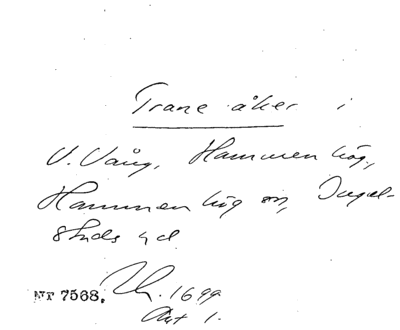 Trane åker i
V. Vång, Hammenhög,
Hammenhög sn, Ingel-
stads hd
NT 7568. 1699
Akt 1.